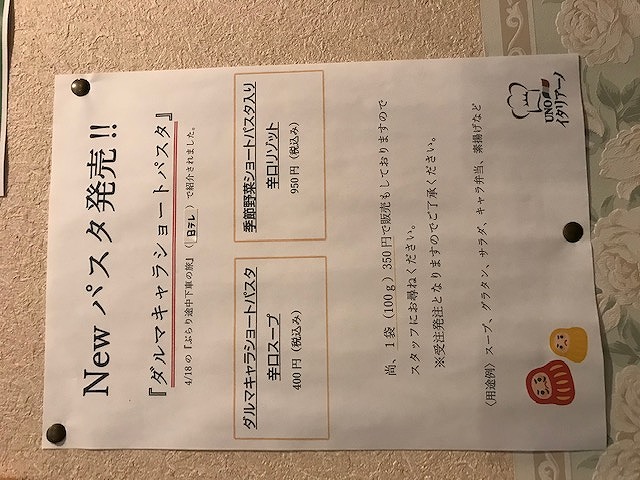 New パスタ発売!!
『ダルマキャラショートパスタ』
4/18 の『ぶらり途中下車の旅』（日テレ）で紹介されました。
ダルマキャラショートパスタ
辛口スープ
400 円（税込み）
季節野菜ショートパスタ入り
辛口リゾット
950 円（税込み）
尚、1 袋（100ｇ）350 円で販売もしておりますので
スタッフにお尋ねください。
※受注発注となりますのでご了承ください。
〈用途例〉スープ、グラタン、サラダ、キャラ弁当、素揚げなど
UNO
イタリアーノ